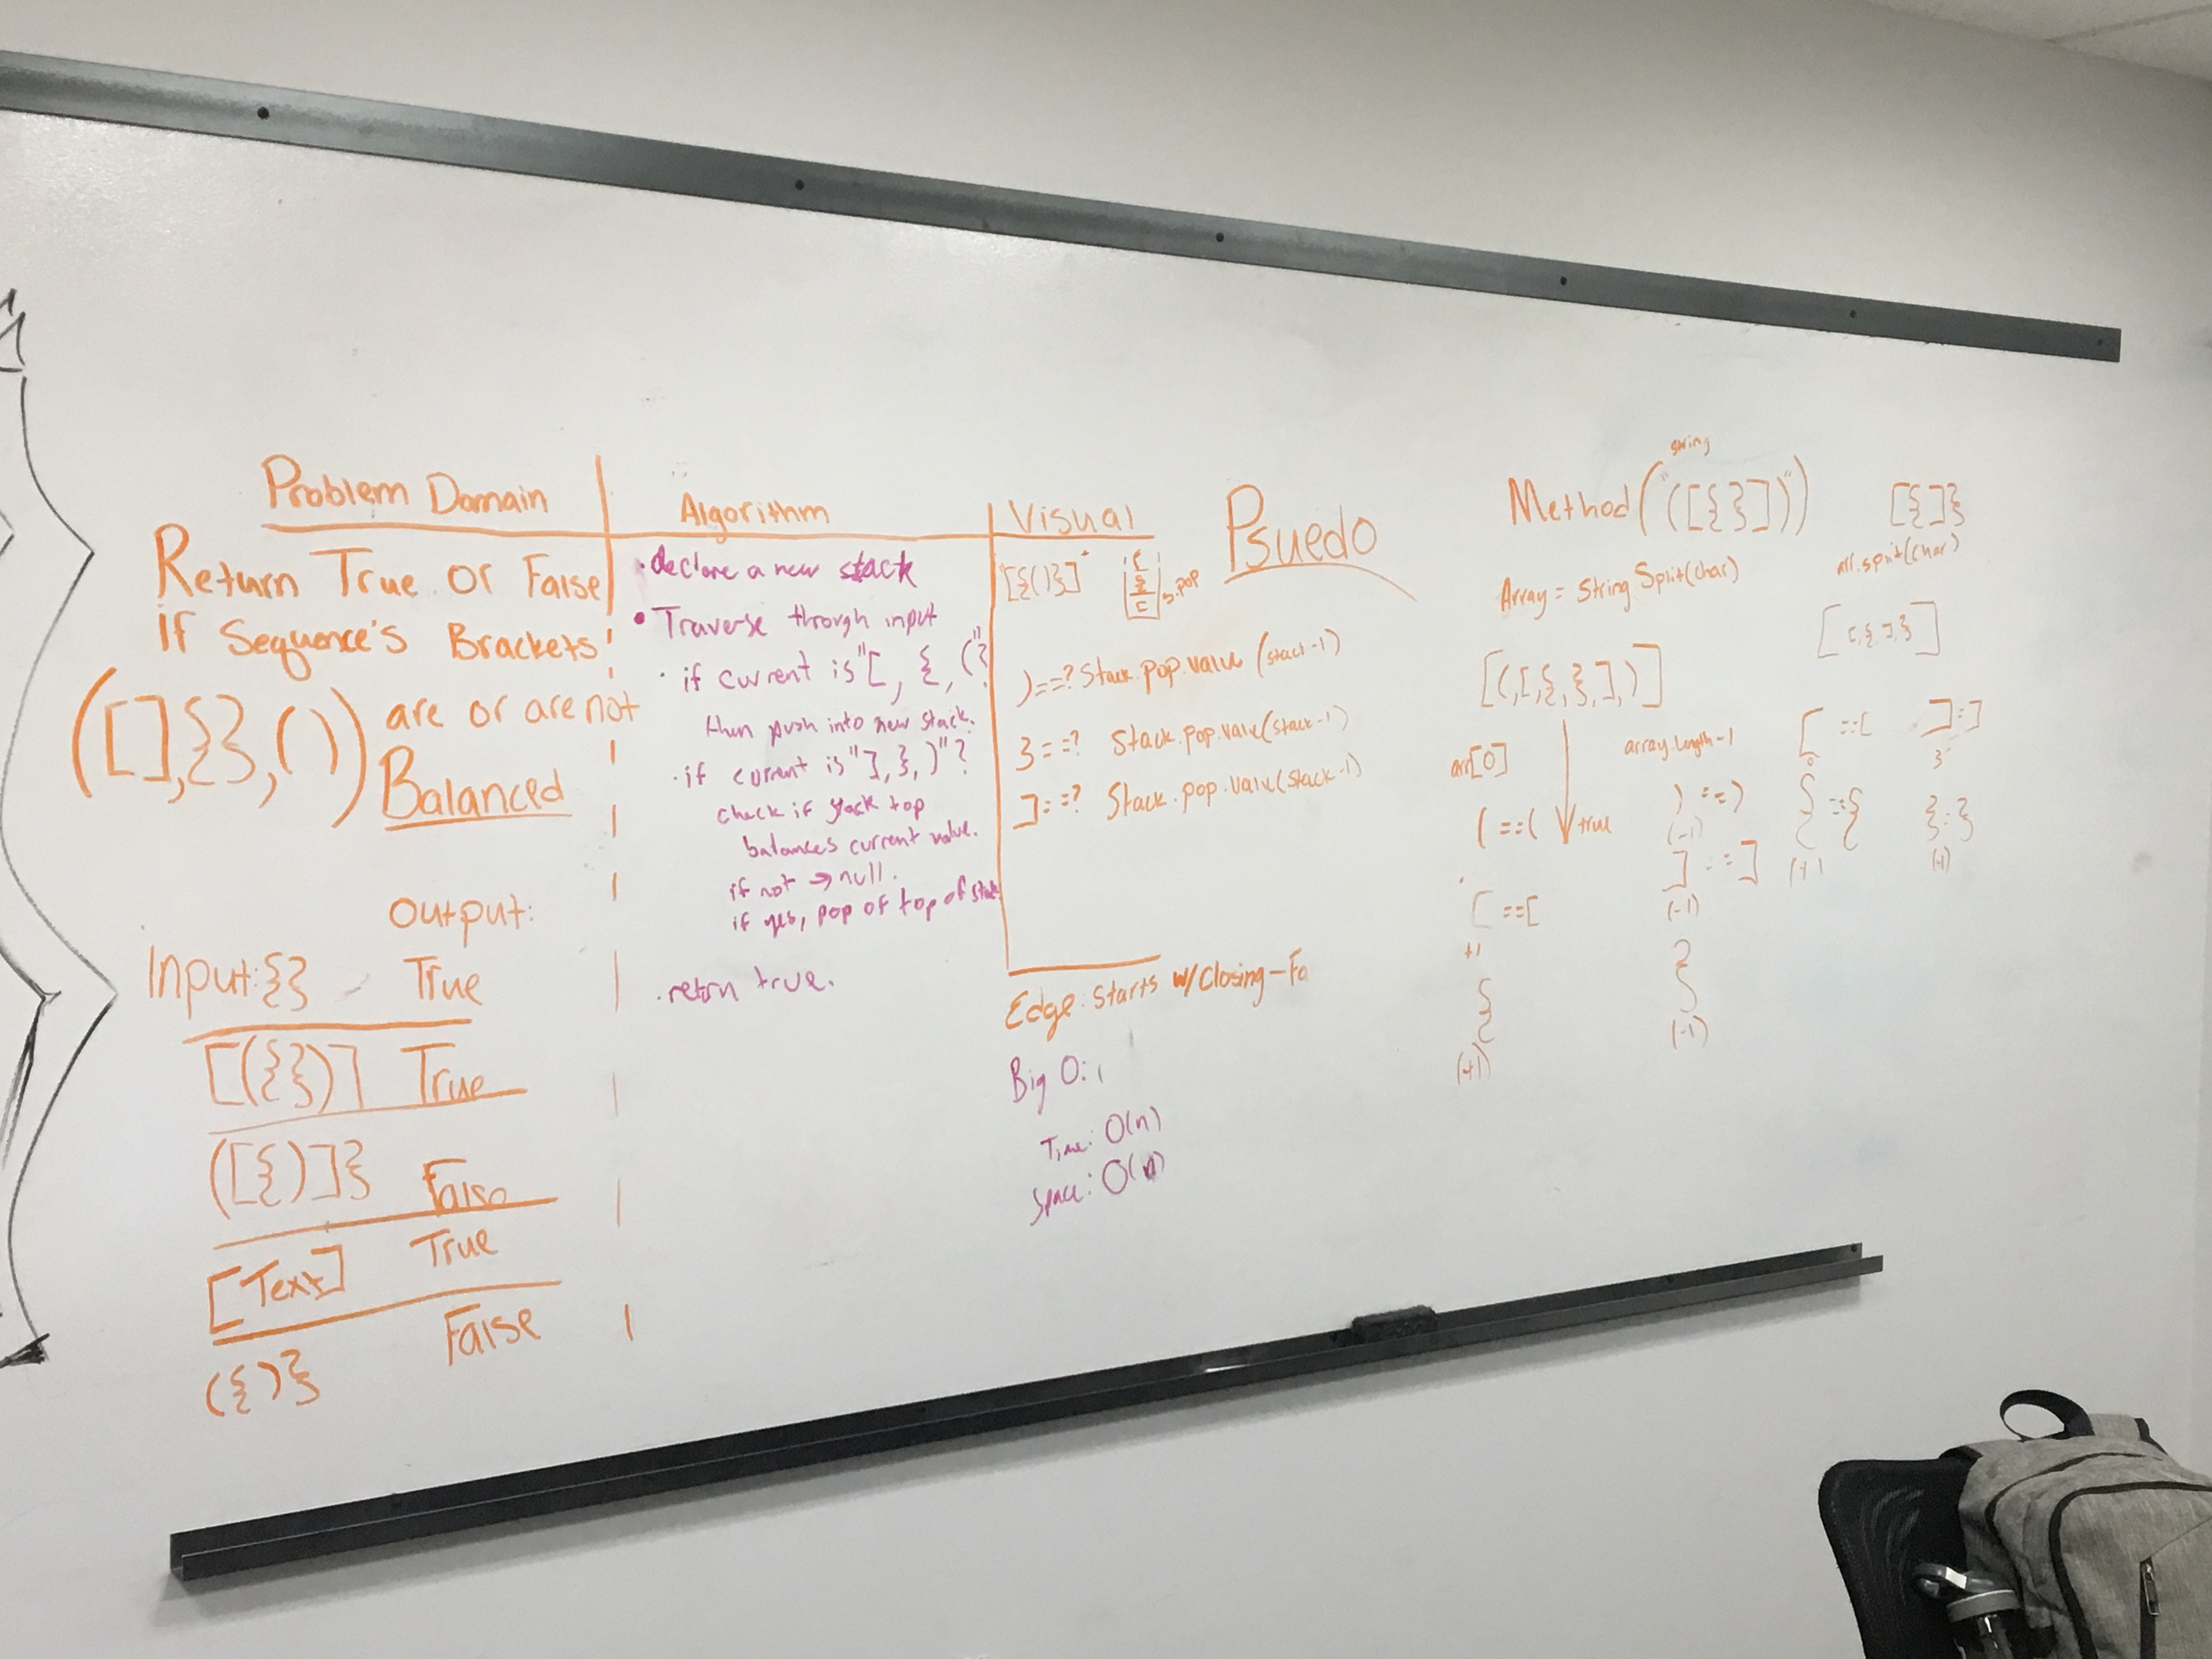 Problem Domain
Return True or False
if Sequence's Brackets
([],{},()) are or are not
Balanced
Output:
Input: {} True
[({})] True
([{)]} False
[Text] True
({)} False
Algorithm
· declare a new stack
• Traverse through input
· if current is "[, {, ("?
then push into new stack.
· if current is "], }, )"?
check if stack top
balances current value.
if not → null.
if yes, pop of top of stack
· retrn true.
Visual
[{()}]
s.pop
) ==? Stack.pop.value (stack-1)
} ==? Stack.pop.value (stack-1)
] ==? Stack.pop.value (stack-1)
Edge: Starts w/ Closing - Fa
Big O:
Time: O(n)
Space: O(n)
Psuedo
string
Method("([{}])")
Array = String.Split(char)
[(,[,{,},],)]
arr[0]
array.length-1
( == ( true
) == )
(-1)
[ == [
] == ]
+1
(-1)
{
}
(+1)
(-1)
[{]}
arr.split(char)
[[,{,],}]
[ == [
] = ]
0
3
{ == {
} = }
(+1
(-1)